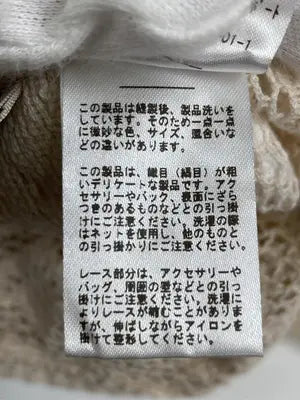 ート
01-1
この製品は縫製後、製品洗いを
しています。そのため一点一点
に微妙な色、サイズ、風合いな
どの違いがあります。
この製品は、織目（編目）が粗
いデリケートな製品です。アク
セサリーやバック、表面にざら
つきのあるものなどとの引っ掛
けにご注意ください。洗濯の際
はネットを使用し、他のものと
の引っ掛かりにご注意ください。
レース部分は、アクセサリーや
バッグ、周囲の愛などとの引っ
掛けにご注意ください。洗濯に
よりレースが縮むことがありま
すが、伸ばしながらアイロンを
掛けて整形してください。